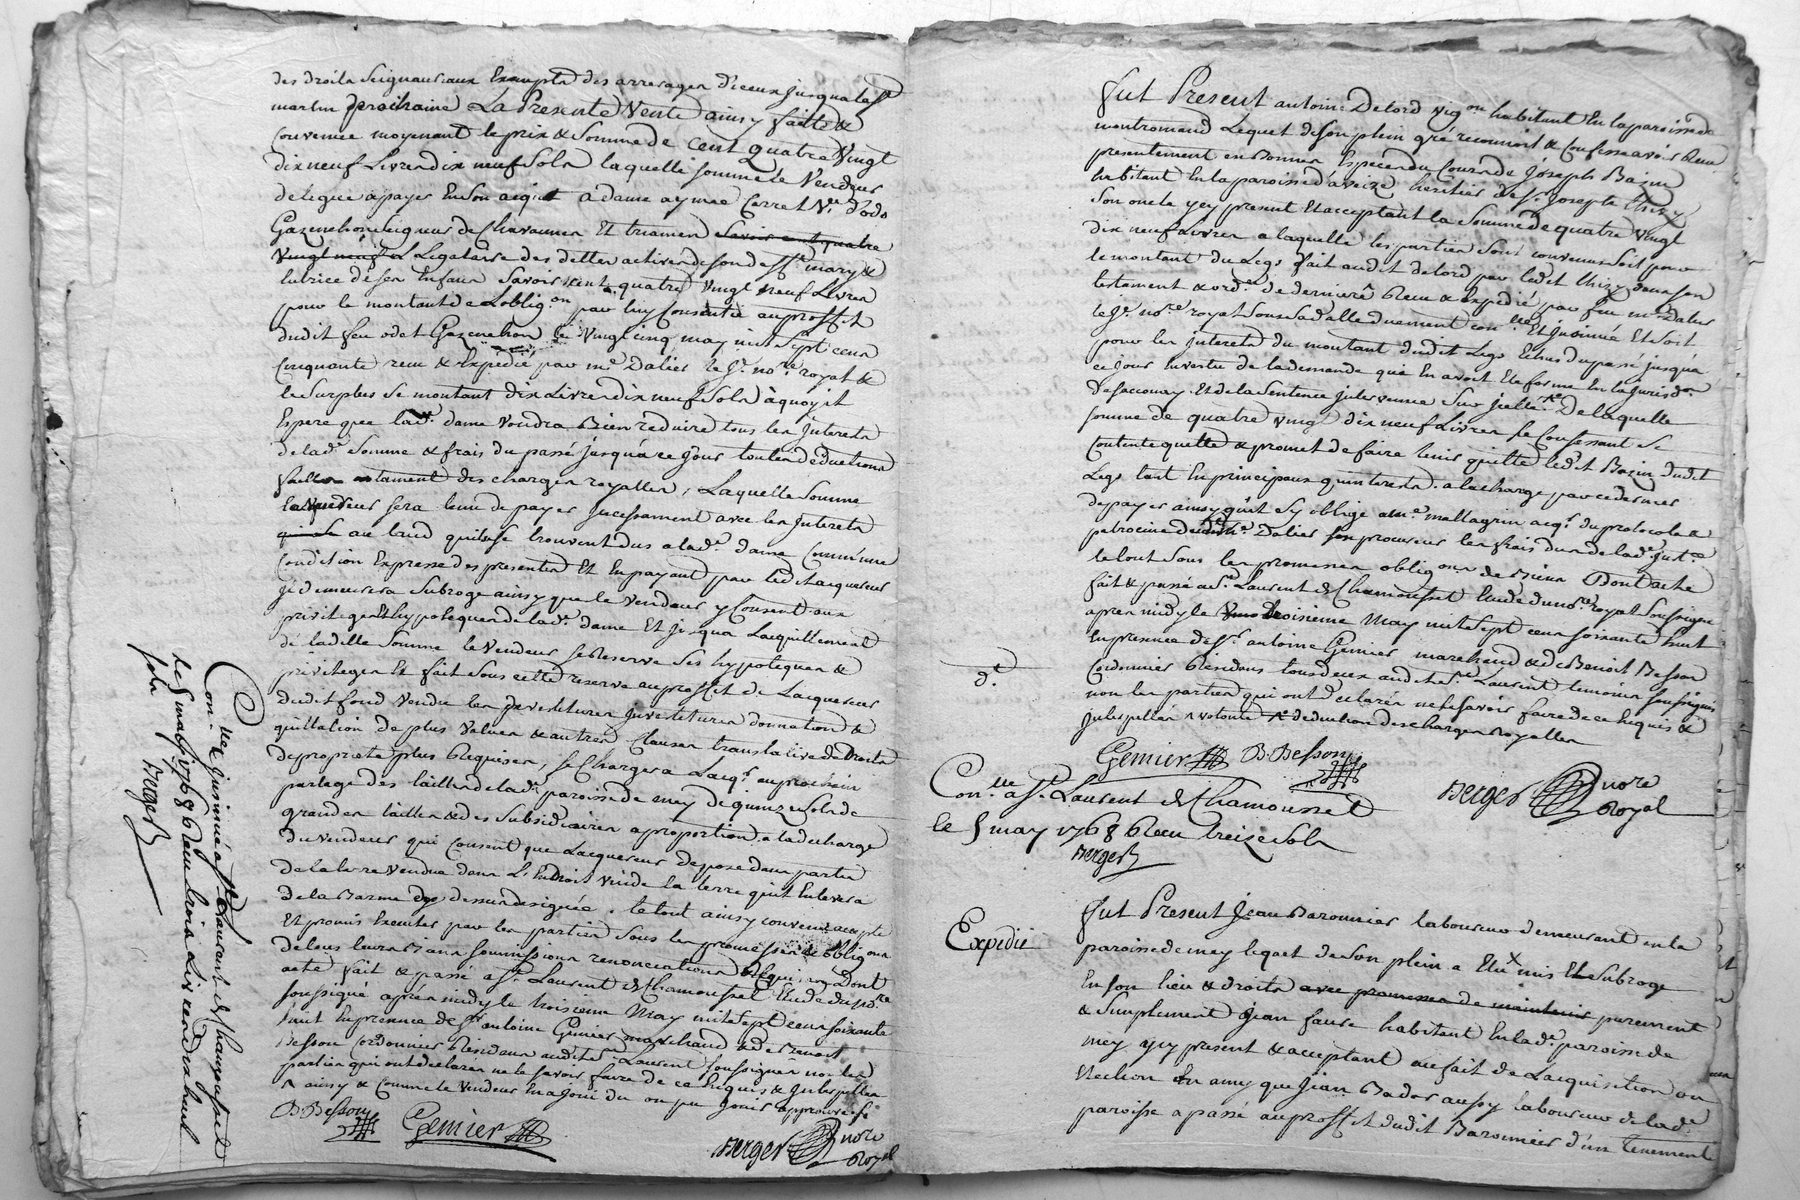 des droits Seigneuriaux Exempts des arrerages d'iceux jusqua la St
martin prochaine La Presente Vente ainsy faitte &
Convenue moyenant le prix & Somme de Cent quatre Vingt
dix neuf Livres dix neuf Sols laquelle somme le Vendeur
delegue a payer En Son acquit a dame aymée Carret Ve d'odo
Gazanchon seigneur de Chavannes Et trismen Savoir cent quatre
Vingt neuf # Legataire des dettes actives de son defft mary &
tutrice de ses Enfans Savoir Cent quatre Vingt neuf Livres
pour le montant de L'oblig.on par luy Consentie au proffit
dudit feu odet Gazanchon le Vingt cinq may mil Sept cens
Cinquante receu & Expédié par me Dalier le Je nore royal &
le Surplus Se montant dix Livres dix neuf Sols à quoy il
Espere que lad. dame Voudra Bien reduire tous les Interets
de lad.e Somme & frais du passé jusqu'a ce jour toutes deductions
faittes notament des charges royalles, Laquelle Somme
Lacquereur sera tenu de payer incessament avec les Interets
au taux quils se trouvent dus a lad.e dame Comm'une
Condition Expresse des presentes Et En payant par ledit acquereur
il demeurera Subrogé ainsy que le Vendeur y Consent aux
privileges & hypoteques de lad.e dame Et jusqua Lacquittement
de laditte Somme le Vendeur se Reserve Ses hypoteques &
privileges Et fait Sous cette reserve au proffit de Lacquereur
dudit fond Vendu les devestitures Investitures donnation &
quittation de plus Values & autres Clauses translatives de Droits
de propriété plus Requises, se Chargera Lacqr au prochain
partage des tailles de lad. paroisse de mey de quinze Sols de
grandes tailles & des Subsidiaires a proportion a la decharge
du Vendeur qui Consent que Lacquereur depose dans partie
de la terre Vendue dans L'Endroit Vuide la terre qu'il Enlevera
de la Barme dessus designée. le tout ainsy Convenu accepté
Et promis Executer par les parties Sous les promesses & oblig.ons
de tous leurs Biens Soumissions renonciations & Requises Dont
acte fait & passé a St Laurent de Chamousset Etude du nore
Soussigné après midy le troisieme May mil Sept cens soixante
huit En presence de Sr antoine Gemier marchand & de Benoit
Besson Cordonnier Residans audit St Laurent Soussignes non les
parties qui ont declarées ne le Savoir faire de ce Enquis & Interpellés
& ainsy & Comme le Vendeur En a joui du ou pu jouir approuvé
B Besson Gemier
Berger nore
Royal
Con.lle & insinué a St Laurent de Chamousset
le 5 may 1768 Reçu trois Livres dix huit
sols Berger
Fut Present antoine Delord vigon habitant En la paroisse de
montromand Lequel de Son plein gré reconnoit & Confesse avoir Reçu
presentement en Bonnes Especes du Cours de Joseph Bazin
habitant En la paroisse d'aveize heritier de Sr Joseph Thizy
Son oncle icy present Et acceptant la Somme de quatre Vingt
dix neuf Livres a laquelle les parties Sont Convenus Soit pour
le montant du Legs fait audit Delord par ledit Thizy dans son
testament & ord.e de derniere Receu & Expedié par feu me Dalier
le Je nore royal Sous Sa datte duement con.lle Et Insinué Et Soit
pour les Interets du montant dudit Legs Echus du passé jusqua
ce jour En vertu de la demande que En avoit Eté formé En la jurisd.on
de Sacconay Et de la Sentence Intervenue Sur Icelle, De laquelle
Somme de quatre Vingt dix neuf Livres Se Confessant Se
Contente quitte & promet de faire tenir quitte ledit Bazin dudit
Legs tant En principaux qu'interets. a la charge par ce dernier
de payer ainsy qu'il S'y oblige a me mallagrin acqr du protocole &
patrocine dudit me Dalier son procureur les frais dus de lad.e Just.ce
le tout Sous les promesses oblig.ons de Biens Dont acte
fait & passé a St Laurent de Chamousset Etude du nore royal Soussigné
apres midy le troisieme May mil Sept cens soixante huit
En presence de Sr antoine Gemier marchand & de Benoit Besson
Cordonnier Residans tous deux audit St Laurent temoins Soussignés
non les parties qui ont declarées ne le Savoir faire de ce Enquis &
Interpellés a volonté & deduction des charges Royalles
d.e
Gemier B Besson
Berger nore
Royal
Con.lle a St Laurent de Chamousset
le 5 may 1768 Reçu treize Sols
Berger
Expedié
Fut Present Jean Baronnier laboureur demeurant en la
paroisse de mey lequel de Son plein a Eté mis Et Subrogé
En Son lieu & droits avec promesse de maintenir purement
& Simplement Jean faure habitant En lad.e paroisse de
mey ycy present & acceptant au fait de Lacquisition ou
Election En amy que Jean Bador aussy laboureur de lad.e
paroisse a passé au proffit dudit Baronnier d'un tenement